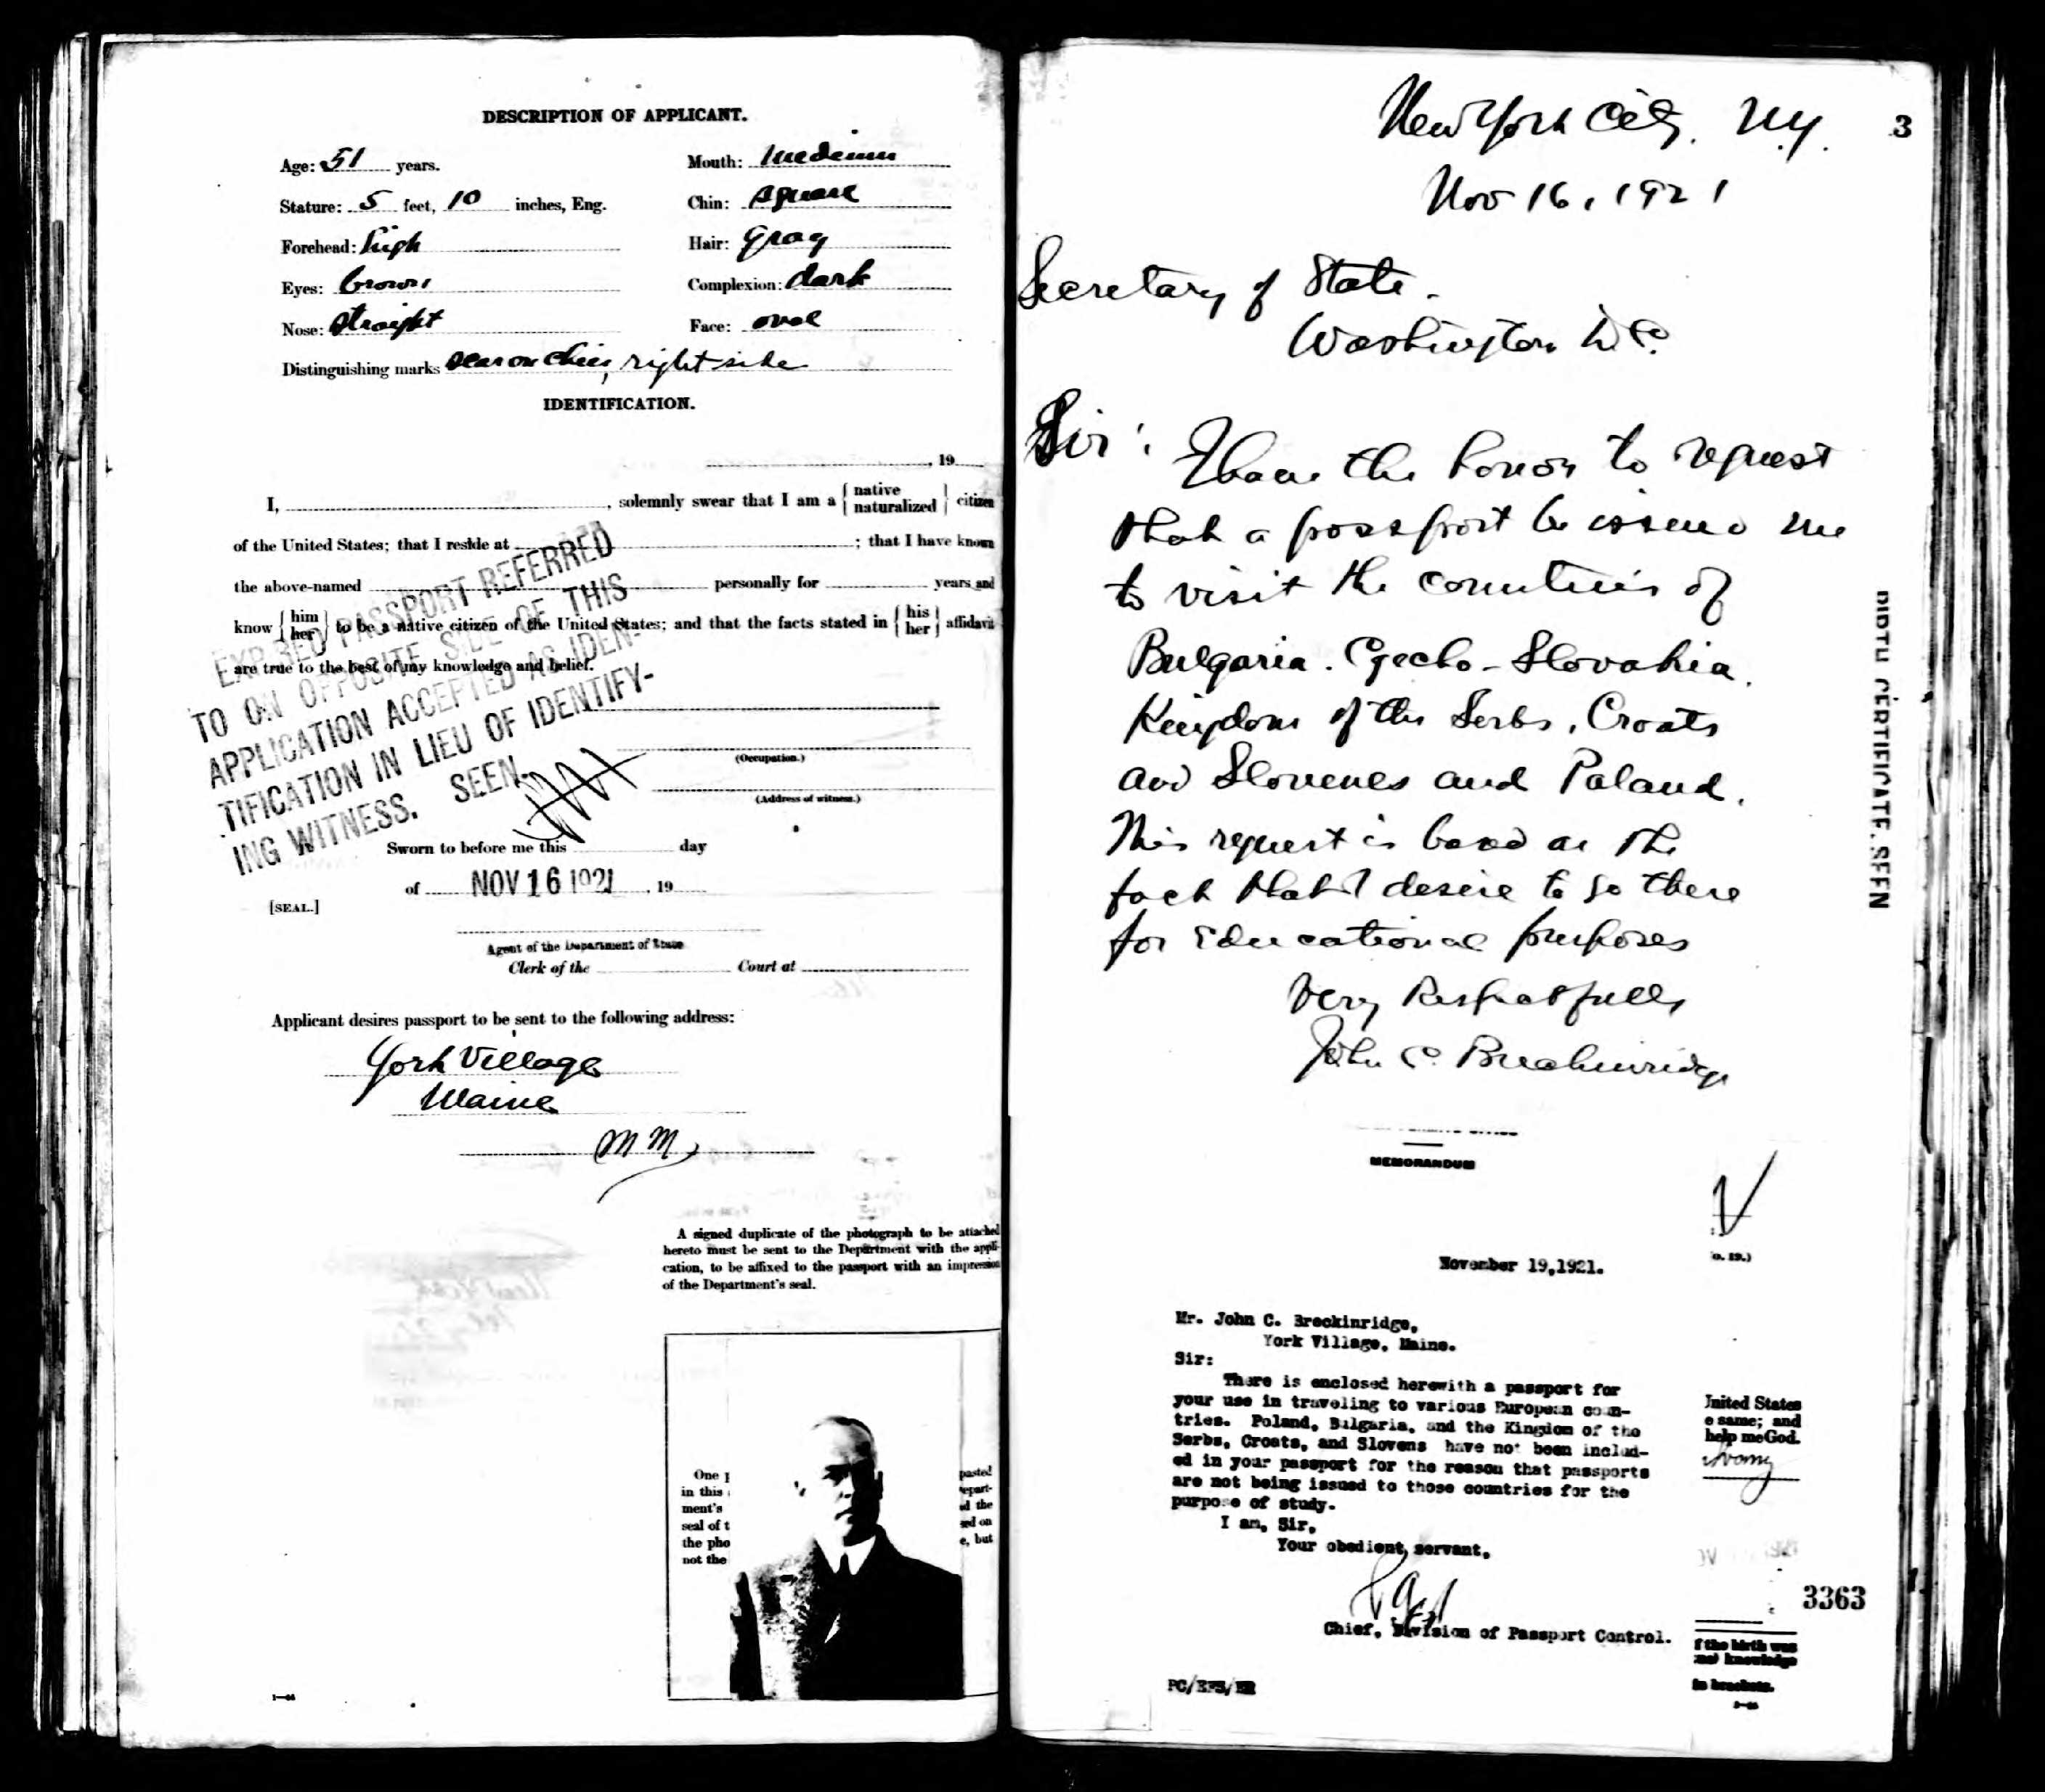 DESCRIPTION OF APPLICANT.
Age: 51 years.
Mouth: Medium
Stature: 5 feet, 10 inches, Eng.
Chin: square
Forehead: high
Hair: gray
Eyes: brown
Complexion: dark
Nose: straight
Face: oval
Distinguishing marks scar on chin, right side
IDENTIFICATION.
, 19
I, , solemnly swear that I am a { native naturalized } citizen
of the United States; that I reside at ; that I have known
the above-named personally for years and
know { him her } to be a native citizen of the United States; and that the facts stated in { his her } affidavit
are true to the best of my knowledge and belief.
EXPIRED PASSPORT REFERRED
TO ON OPPOSITE SIDE OF THIS
APPLICATION ACCEPTED AS IDEN-
TIFICATION IN LIEU OF IDENTIFY-
ING WITNESS. SEEN.
(Occupation.)
(Address of witness.)
Sworn to before me this day
of NOV 16 1921, 19
[SEAL.]
Agent of the Department of State
Clerk of the Court at
Applicant desires passport to be sent to the following address:
York Village
Maine
M M
A signed duplicate of the photograph to be attached
hereto must be sent to the Department with the appli-
cation, to be affixed to the passport with an impression
of the Department's seal.
One
pasted
in this
epart-
ment's
d the
seal of t
ed on
the pho
e, but
not the
New York City. N.Y. 3
Nov 16, 1921
Secretary of State.
Washington D.C.
Sir: I have the honor to request
that a passport be issued me
to visit the countries of
Bulgaria. Czecho-Slovakia.
Kingdom of the Serbs, Croats
and Slovenes and Poland.
This request is based on the
fact that I desire to go there
for Educational purposes
Very Respectfully
John C. Breckinridge
BIRTH CERTIFICATE. SEEN
MEMORANDUM
o. 19.)
November 19,1921.
Mr. John C. Breckinridge,
York Village, Maine.
Sir:
There is enclosed herewith a passport for
your use in traveling to various European coun-
tries. Poland, Bulgaria, and the Kingdom of the
Serbs, Croats, and Slovens have not been includ-
ed in your passport for the reason that passports
are not being issued to those countries for the
purpose of study.
I am, Sir,
Your obedient servant,
Chief, Division of Passport Control.
PC/EFS/
United States
e same; and
help me God.
3363
f the birth was
nal knowledge
in brackets.